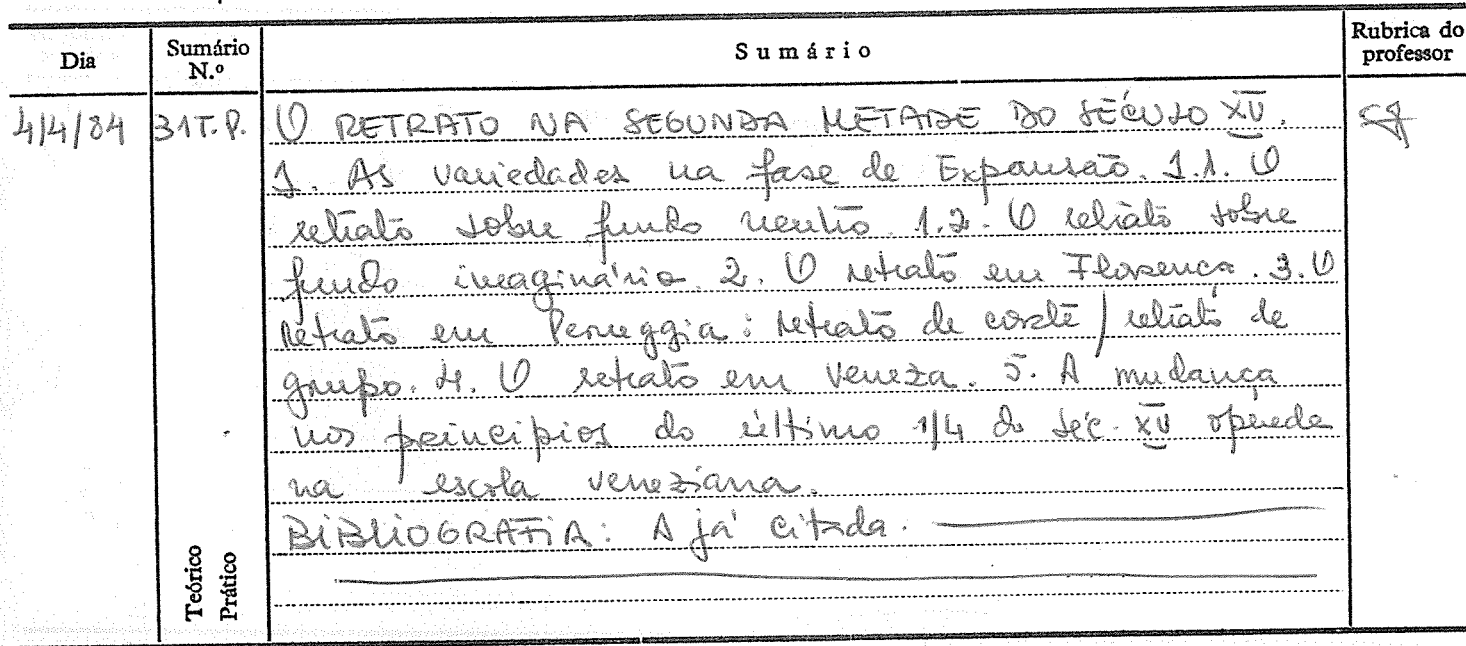 Dia
Sumário N.º
Sumário
Rubrica do professor
4/4/84 31T.P. O RETRATO NA SEGUNDA METADE DO SÉCULO XV.
1. As variedades na fase de Expansão. 1.1. O
retrato sobre fundo neutro. 1.2. O retrato sobre
fundo imaginário. 2. O retrato em Florença. 3. O
retrato em Peruggia: retrato de corte / retrato de
grupo. 4. O retrato em Veneza. 5. A mudança
nos princípios do último 1/4 do séc. XV operada
na escola veneziana.
BIBLIOGRAFIA: A já citada.
Teórico
Prático